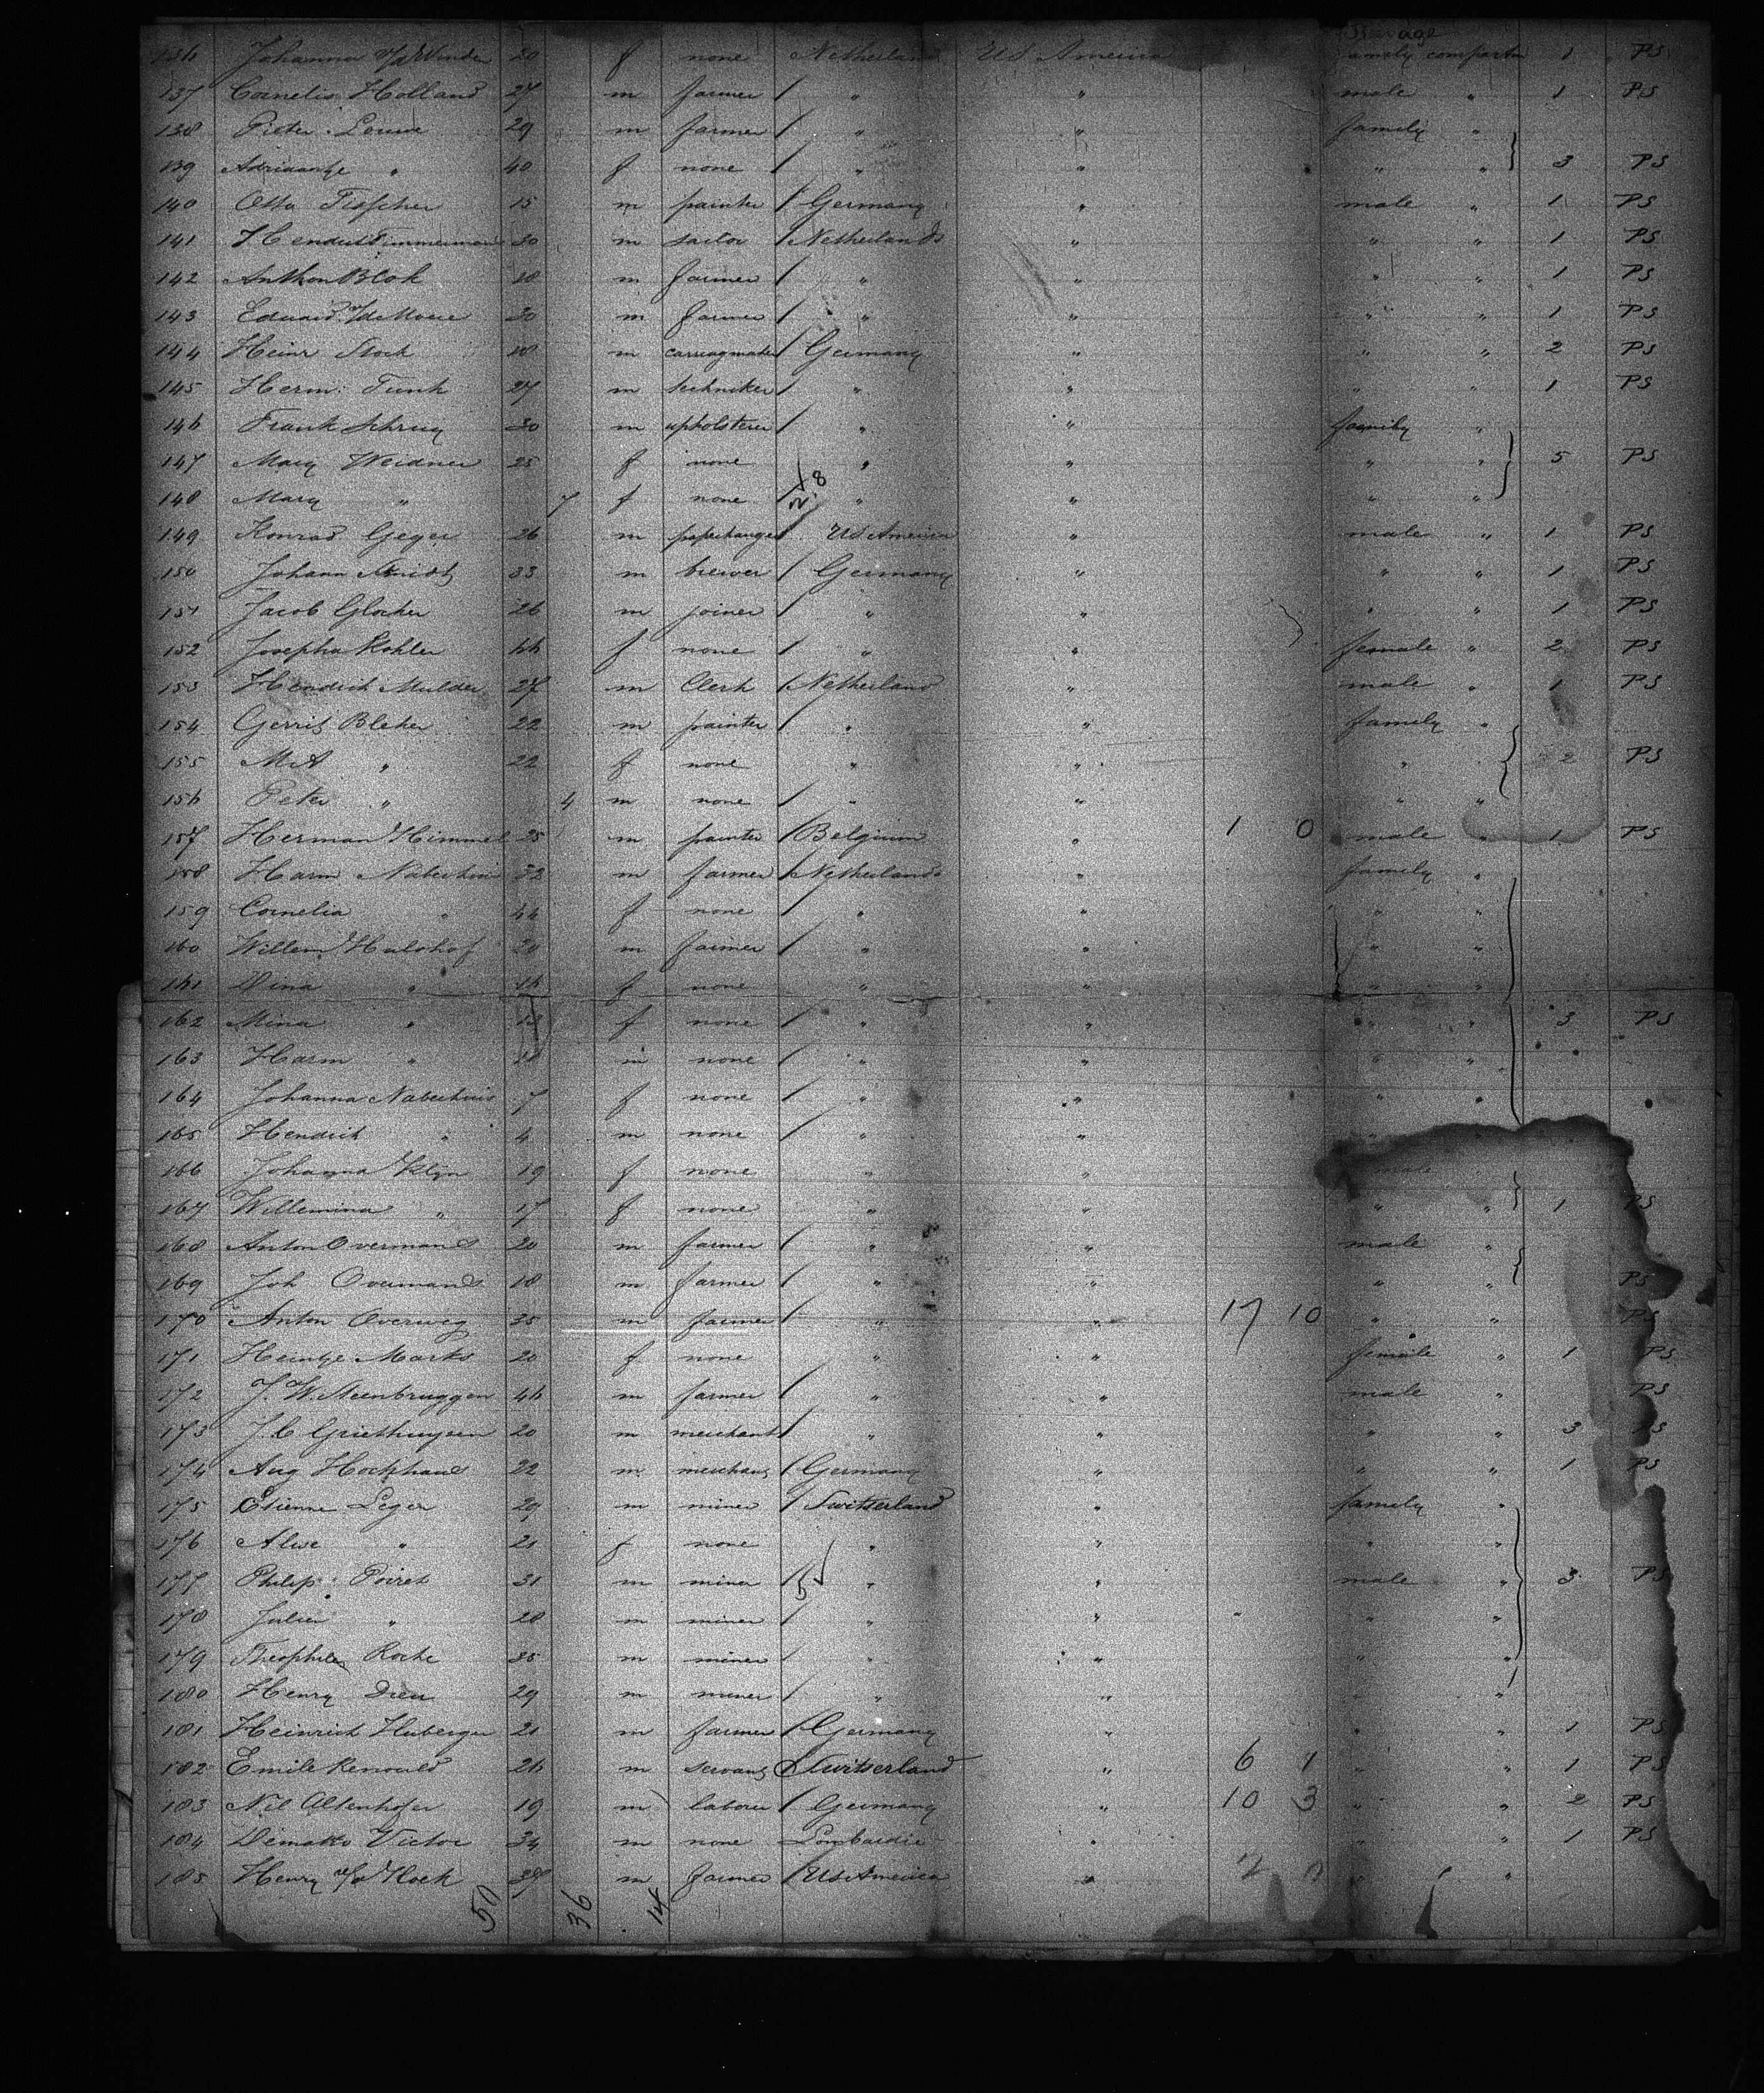 Steerage
136 Johanna v/d Winde 20 f none Netherland US America family compartm 1 PS
137 Cornelis Holland 27 m farmer / " " male " 1 PS
138 Pieter Louwe 29 m farmer / " " family "
139 Adriaantje " 40 f none / " " " " } 3 PS
140 Otto Fischer 15 m painter / Germany " male " 1 PS
141 Hendrik Timmerman 30 m sailor / Netherlands " " " 1 PS
142 Anthon Blok 28 m farmer / " " " " 1 PS
143 Eduard v/d Moere 30 m farmer / " " " " 1 PS
144 Heinr Stock 18 m carriagmaker / Germany " " " 2 PS
145 Herm: Funk 27 m techniker / " " " " 1 PS
146 Frank Schrug 30 m upholsterer / " " family "
147 Mary Weidner 25 f none " " " " } 5 PS
148 Mary " 7 f none / " " " "
149 Konrad Geger 26 m paperhanger / US America " male " 1 PS
150 Johann 33 m brewer / Germany " " " 1 PS
151 Jacob Glocker 26 m joiner / " " " " 1 PS
152 Josepha Kohler 44 f none / " " female " 2 PS
153 Hendrik Mulder 27 m Clerk / Netherland " male " 1 PS
154 Gerrit Bleker 22 m painter / " " family "
155 M A " 22 f none " " " } 2 PS
156 Peter " 4 m none / " " " "
157 Herman Himmel 25 m painter / Belgium " 1 0 male " 1 PS
158 Harm Naberhuis 32 m farmer / Netherlands " family "
159 Cornelia " 44 f none / " " " "
160 Willem Hulshof 20 m farmer / " " " "
161 Dina " 16 f none " " " "
162 Mina " 13 f none / " " " " } 3 PS
163 Harm " m none / " " " "
164 Johanna Naberhuis 7 f none / " " " "
165 Hendrik " 4 m none / " " "
166 Johanna Klijn 19 f none " " male
167 Willemina " 17 f none " " " " } 1 PS
168 Anton Overmans 20 m farmer / " " male "
169 Joh Overmans 18 m farmer / " " " " } PS
170 Anton Overweg 35 m farmer / " " 17 10 " " PS
171 Heintje Marks 20 f none " " female " 1 PS
172 J. W. Steenbruggen 46 m farmer / " " male " PS
173 J. C Griethuysen 20 m merchant / " " " " 3 PS
174 Aug Hockhaus 22 m merchant / Germany " " " 1 PS
175 Etienne Leger 29 m miner / Switserland " family "
176 Alise " 21 f none " " " "
177 Philip: Poiret 31 m miner / " " male " } 3 PS
178 Julien " 28 m miner / " " " "
179 Theophile Roche 35 m miner / " " " "
180 Henry Dreu 29 m miner / " " "
181 Heinrich Huberger 21 m farmer / Germany " " " 1 PS
182 Emile Renould 26 m servant / Switserland " 6 1 " " 1 PS
183 Nil Altenhofer 19 m laborer / Germany " 10 3 " " 2 PS
184 Dematto Victor 34 m none Lombardie " " " 1 PS
185 Henry v/d Hoek m farmer / US America " " "
50 36 14